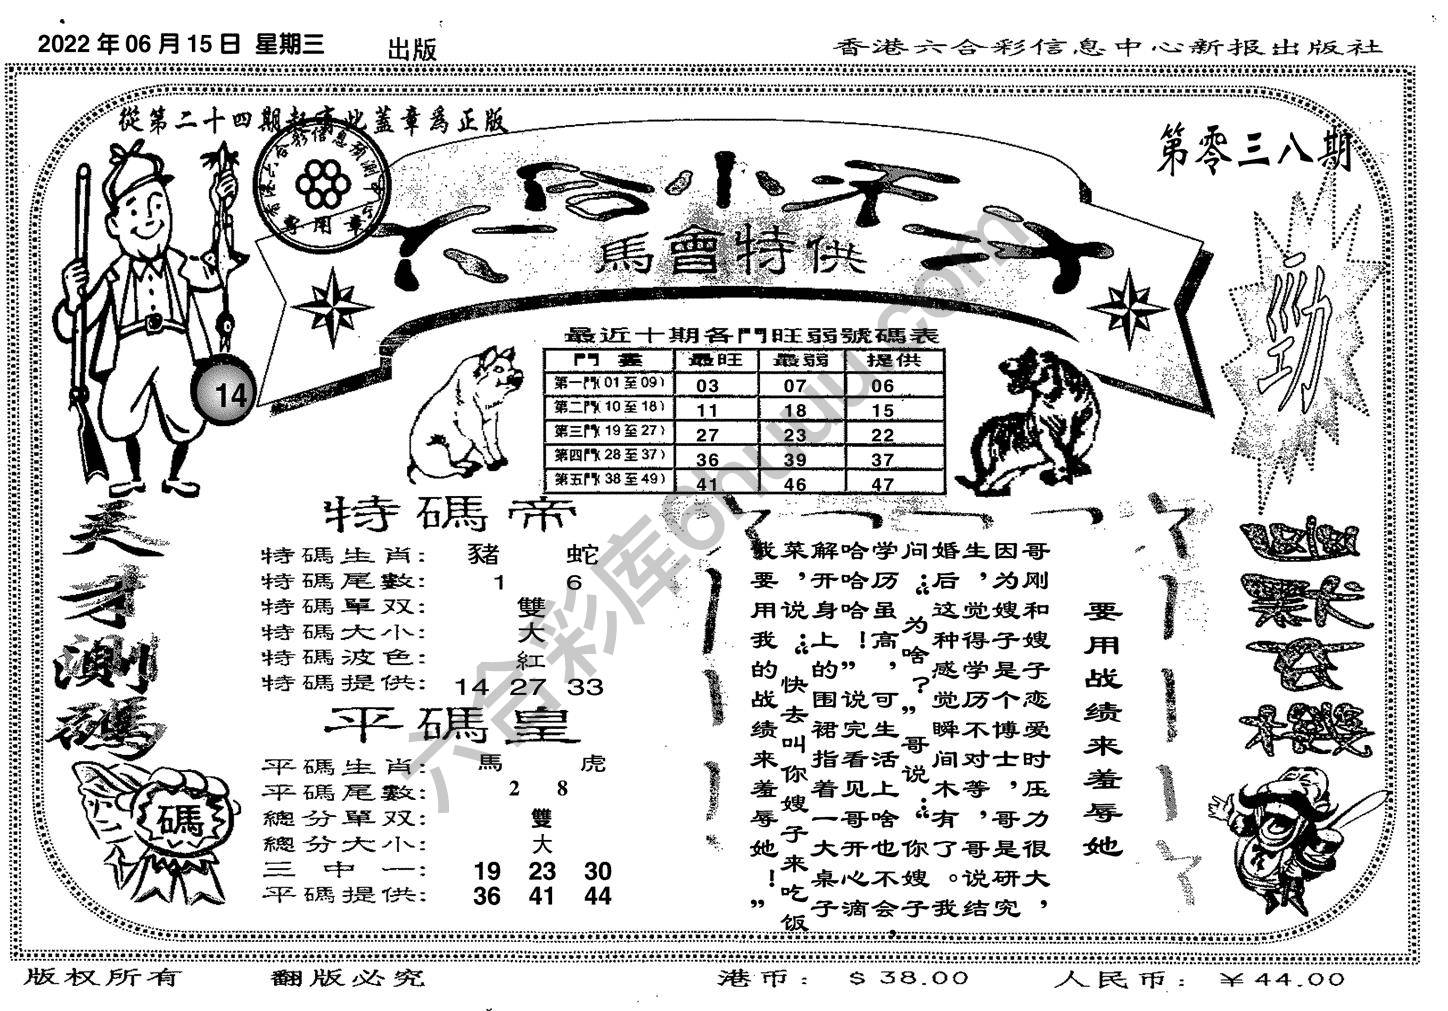 2022 年 06 月 15 日 星期三
出版
香港六合彩信息中心新报出版社
從第二十四期起有此蓋章爲正版
專用章
第零三八期
六合小天才
馬會特供
勁
14
最近十期各門旺弱號碼表
門 最旺 最弱 提供
第一門(01至09) 03 07 06
第二門(10至18) 11 18 15
第三門(19至27) 27 23 22
第四門(28至37) 36 39 37
第五門(38至49) 41 46 47
天才測碼
碼
特碼帝
特碼生肖: 豬 蛇
特碼尾數: 1 6
特碼單双: 雙
特碼大小: 大
特碼波色: 紅
特碼提供: 14 27 33
平碼皇
平碼生肖: 馬 虎
平碼尾數: 2 8
總分單双: 雙
總分大小: 大
三中一: 19 23 30
平碼提供: 36 41 44
要用战绩来羞辱她
哥刚和嫂子恋爱时压力很大，
因为嫂子是个博士，哥是研究
生，觉得学历不对等，哥说结
婚后这种感觉瞬间木有了。我
问：“为啥？”哥说：“你嫂子
学历虽高，可生活上啥也不会，
哈哈哈！”说完看见哥开心滴
解开身上的围裙指着一大桌子
菜，说：“快去叫你嫂子来吃饭
我要用我的战绩来羞辱她！”
六合彩库6huuu.com
版权所有
翻版必究
港币: $ 38.00
人民币: ¥ 44.00